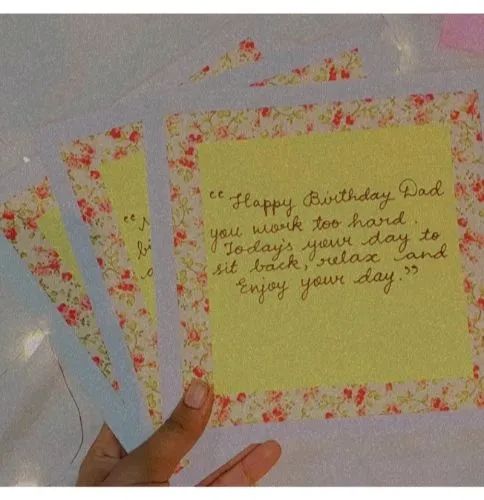 “Happy Birthday Dad
you work too hard.
Today's your day to
sit back, relax and
Enjoy your day.”